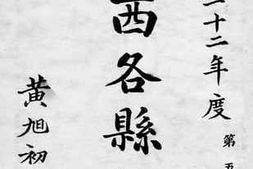 二十二年度
第五
西各縣
黃旭初